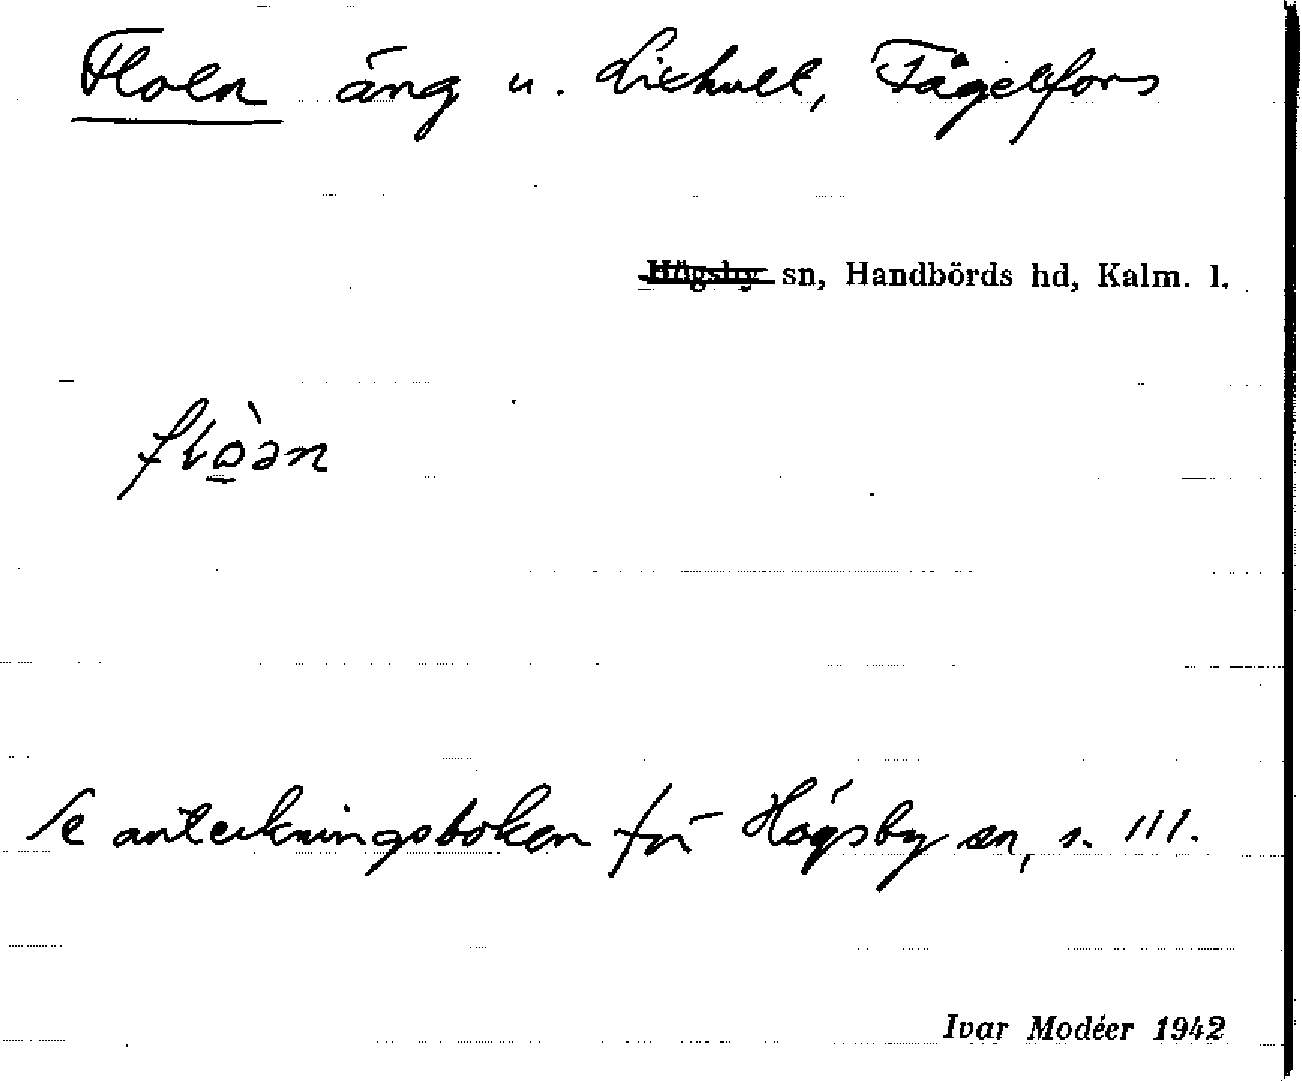 Floen äng u. Lixhult, Fågelfors
Högsby sn, Handbörds hd, Kalm. l.
flò̠ən
Se anteckningsboken för Högsby sn, s. 111.
Ivar Modéer 1942